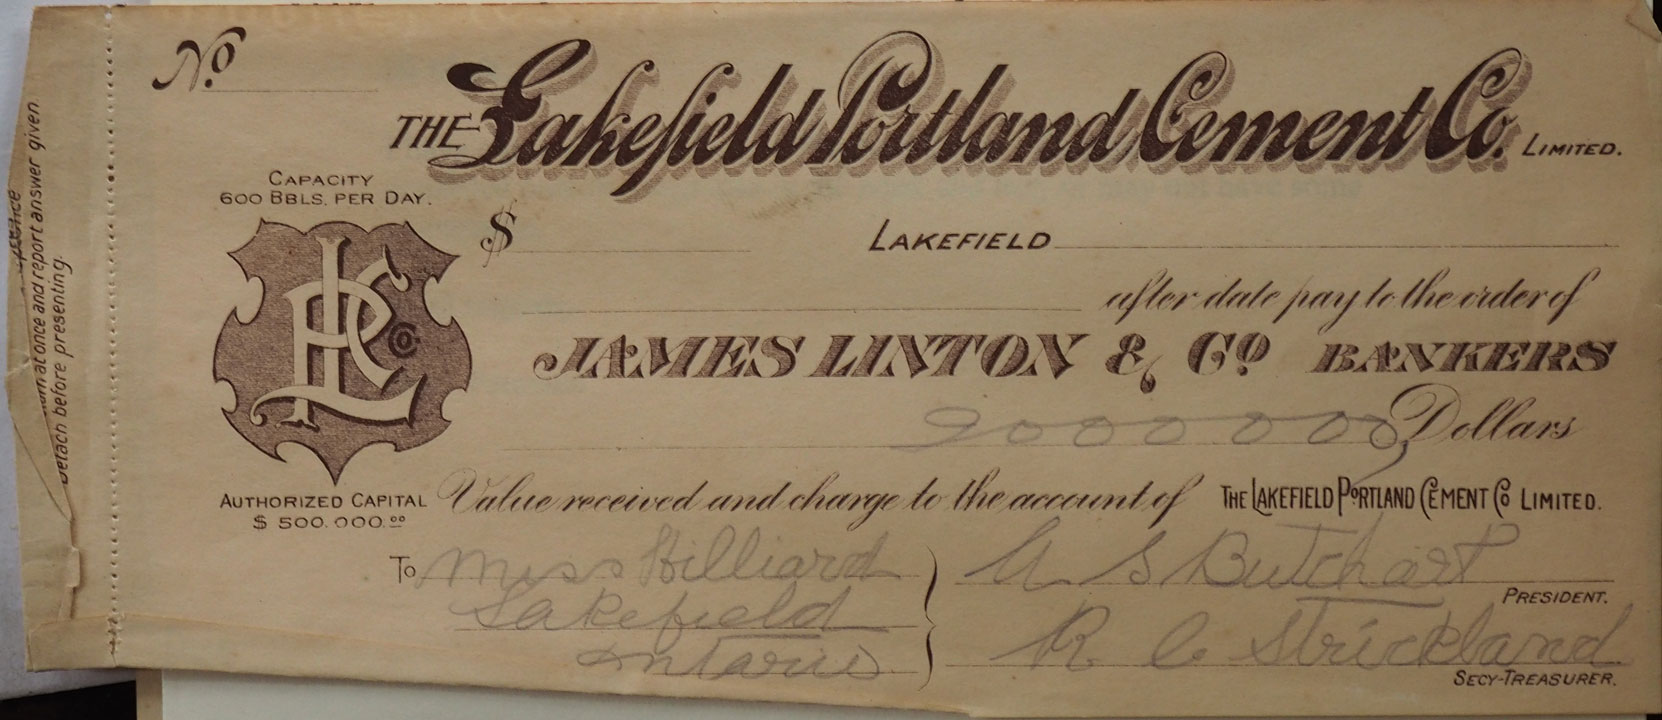 No.
THE Lakefield Portland Cement Co. LIMITED.
CAPACITY
600 BBLS. PER DAY.
$ LAKEFIELD
after date pay to the order of
LPC Co.
JAMES LINTON & Co. BANKERS
Dollars
AUTHORIZED CAPITAL
$500.000.00
Value received and charge to the account of THE LAKEFIELD PORTLAND CEMENT Co LIMITED.
To Miss Hilliard
Lakefield
Ontario
S Butchart
PRESIDENT.
R C Strickland
SECY-TREASURER.
at once and report answer given
Detach before presenting.